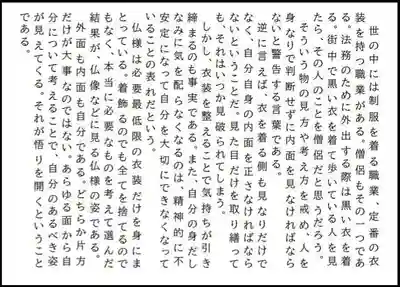 世の中には制服を着る職業、定番の衣
装を持つ職業がある。僧侶もその一つであ
る。法務のために外出する際は黒い衣を着
る。街中で黒い衣を着て歩いている人を見
たら、その人のことを僧侶だと思うだろう。
そういう物の見方や考え方を戒め、人を
身なりで判断せずに内面を見なければなら
ないと警告する言葉である。
逆に言えば、衣を着る側も見なりだけで
なく、自分自身の内面を正さなければなら
ないということだ。見た目だけを取り繕って
も、それはいつか見破られてしまう。
しかし、衣装を整えることで気持ちが引き
締まるのも事実である。また、自分の身だし
なみに気を配らなくなるのは、精神的に不
安定になって自分を大切にできなくなって
いることの表れだという。
仏様は必要最低限の衣装だけを身にま
とっている。着飾るのでも全てを捨てるので
もなく、本当に必要なものを考えて選んだ
結果が、仏像などに見る仏様の姿である。
外面も内面も自分である。どちらか片方
だけが大事なのではない。あらゆる面から自
分について考えることで、自分のあるべき姿
が見えてくる。それが悟りを開くということ
である。